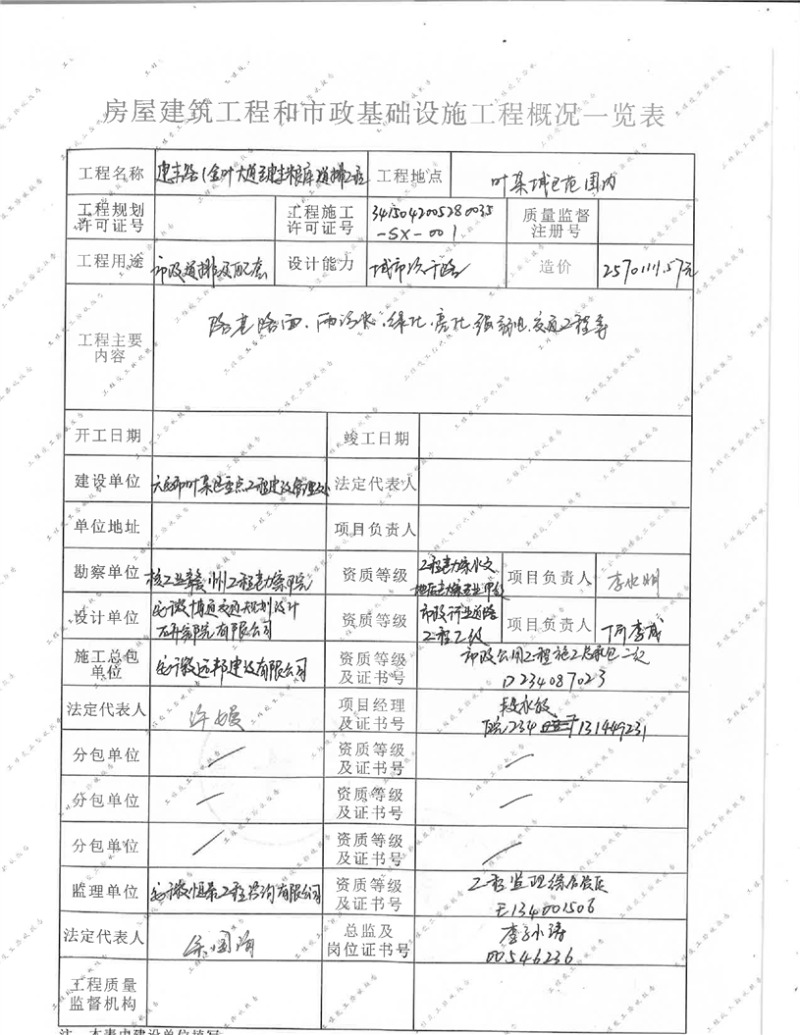 房屋建筑工程和市政基础设施工程概况一览表
工程名称 建丰路(金叶大道至建丰粮库道排工程 工程地点 叶集城区范围内
工程规划许可证号 工程施工许可证号 3415042005280035-SX-001 质量监督注册号
工程用途 市政道排及配套 设计能力 城市次干路 造价 2570111.57元
工程主要内容 路基路面、雨污水、绿化、亮化、强弱电、交通工程等
开工日期 竣工日期
建设单位 六安市叶集区重点工程建设管理处 法定代表人
单位地址 项目负责人
勘察单位 核工业赣州工程勘察院 资质等级 工程勘察水文 项目负责人 李水明
设计单位 安徽博通交通规划设计研究院有限公司 资质等级 市政行业道路工程乙级 项目负责人
施工总包单位 安徽远邦建设有限公司 资质等级及证书号 市政公用工程施工总承包二级 D234087023
法定代表人 许娟 项目经理及证书号 皖234131449231
分包单位 / 资质等级及证书号 /
分包单位 / 资质等级及证书号 /
分包单位 / 资质等级及证书号 /
监理单位 资质等级及证书号 工程监理综合资质 E134001506
法定代表人 总监及岗位证书号 00546236
工程质量监督机构
注：本表由建设单位填写